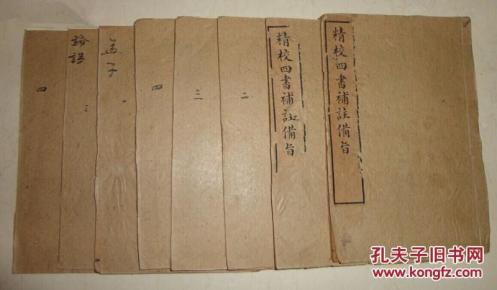 精校四書補註備旨
精校四書補註備旨
二
三
四
孟子
論語
三
四
孔夫子旧书网
www.kongfz.com